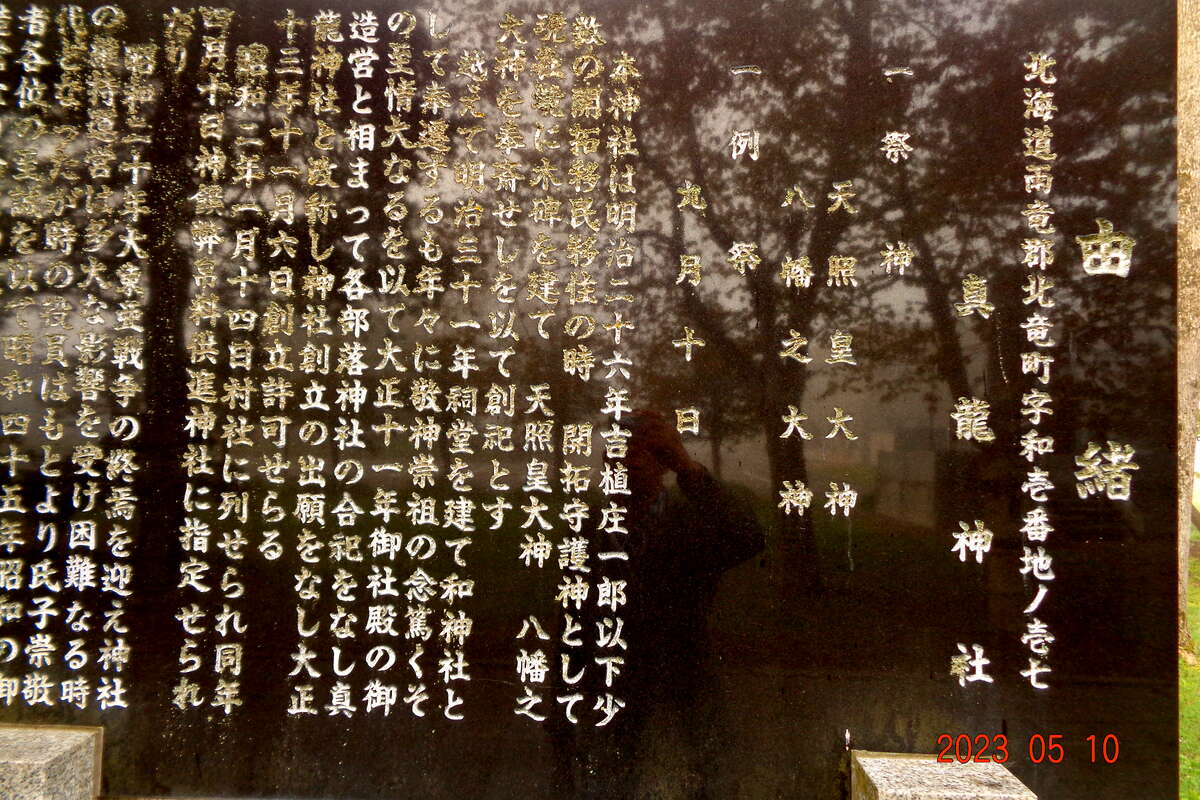 由緒
北海道雨竜郡北竜町字和壱番地ノ壱七
真龍神社
一 祭神
天照皇大神
八幡之大神
一例祭
九月十日
本神社は明治二十六年吉植庄一郎以下少
数の開拓移民移住の時 開拓守護神として
現在境に木碑を建て 天照皇大神 八幡之
大神を奉斎せしを以て創祀とす
越えて明治三十一年祠堂を建て和神社と
して奉遷するも年々に敬神崇祖の念篤くそ
の至情大なるを以て大正十一年御社殿の御
造営と相まって各部落神社の合祀をなし真
龍神社と改称し神社創立の出願をなし大正
十三年十一月六日創立許可せらる
昭和二年一月十四日村社に列せられ同年
四月十日神饌幣帛料供進神社に指定せられ
たり
昭和二十年大東亜戦争の終焉を迎え神社
の維持運営は多大な影響を受け困難なる時
代となったが時の役員はもとより氏子崇敬
者各位の至誠を以て時和四十五年昭和の御
2023 05 10